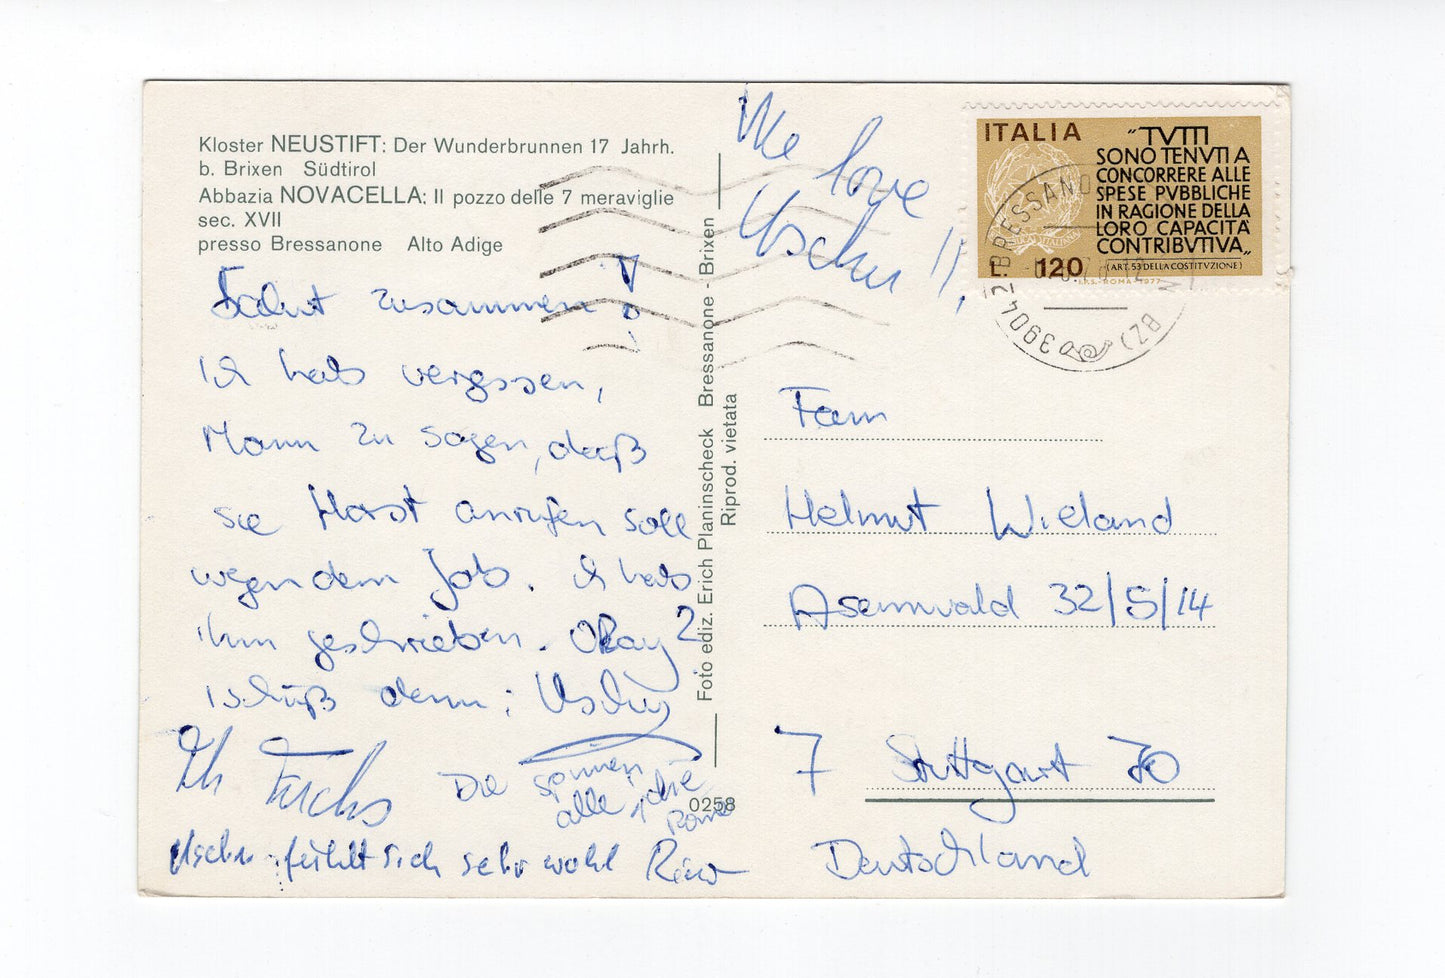 Kloster NEUSTIFT: Der Wunderbrunnen 17 Jahrh.
b. Brixen Südtirol
Abbazia NOVACELLA: Il pozzo delle 7 meraviglie
sec. XVII
presso Bressanone Alto Adige
Salut zusammen!
Ich hab vergessen,
Mann zu sagen, daß
sie Horst anrufen soll
wegen dem Job. Ich hab
ihm geschrieben. Okay?
Tschüß denn; Uschy
Ih Fuchs
Die spinnen
alle
Uschi fühlt sich sehr wohl
We love
Uschi!!
Foto ediz. Erich Planinscheck Bressanone - Brixen
Riprod. vietata
0258
ITALIA
"TVTTI
SONO TENVTI A
CONCORRERE ALLE
SPESE PVBBLICHE
IN RAGIONE DELLA
LORO CAPACITÀ
CONTRIBVTIVA„
(ART. 53 DELLA COSTITVZIONE)
L. 120
I.P.S. - ROMA - 1977
39042 BRESSANONE
(BZ)
Fam
Helmut Wieland
Asemwald 32/5/14
7 Stuttgart 70
Deutschland